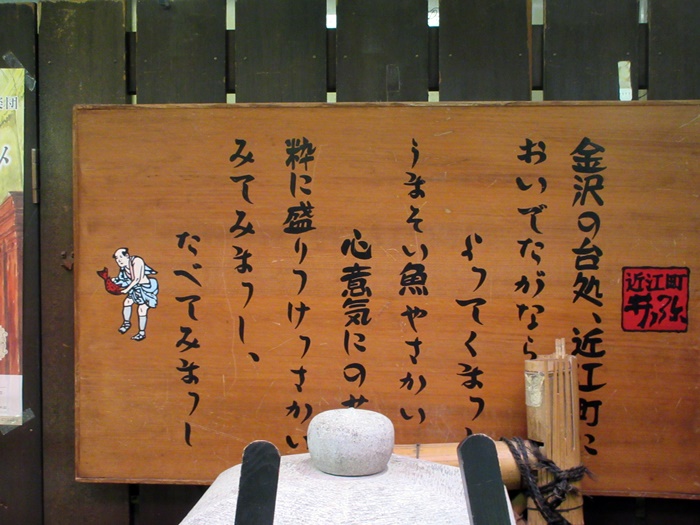 近江町
井ノ弥
金沢の台処、近江町に
おいでたがなら
よってくまっし
うまそい魚やさかい
心意気にのせ
粋に盛りつけっさかい
みてみまっし、
たべてみまっし
団